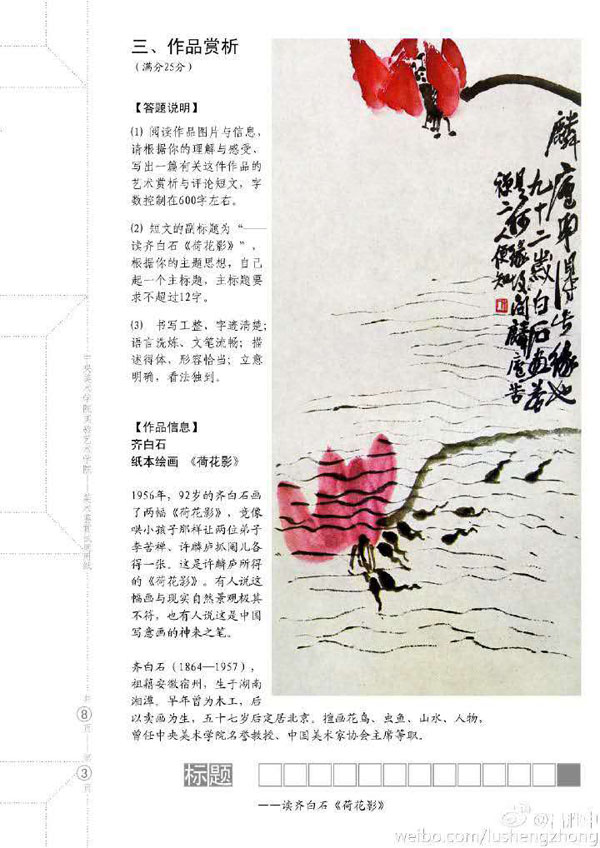 三、作品赏析
（满分25分）
【答题说明】
(1) 阅读作品图片与信息，
请根据你的理解与感受、
写出一篇有关这件作品的
艺术赏析与评论短文，字
数控制在600字左右。
(2) 短文的副标题为“——
读齐白石《荷花影》”，
根据你的主题思想，自己
起一个主标题，主标题要
求不超过12字。
(3) 书写工整，字迹清楚；
语言洗炼、文笔流畅；描
述得体、形容恰当；立意
明确，看法独到。
【作品信息】
齐白石
纸本绘画 《荷花影》
1956年，92岁的齐白石画
了两幅《荷花影》，竟像
哄小孩子那样让两位弟子
李苦禅、许麟庐抓阄儿各
得一张。这是许麟庐所得
的《荷花影》。有人说这
幅画与现实自然景观极其
不符，也有人说这是中国
写意画的神来之笔。
齐白石（1864—1957），
祖籍安徽宿州，生于湖南
湘潭。早年曾为木工，后
以卖画为生，五十七岁后定居北京。擅画花鸟、虫鱼、山水、人物，
曾任中央美术学院名誉教授、中国美术家协会主席等职。
标题
——读齐白石《荷花影》
麟庐弟得此缘也
九十二岁白石画若
是有缘设阄麟庐苦
禅二人便知
共
8
页
第
3
页
weibo.com/lushengzhong